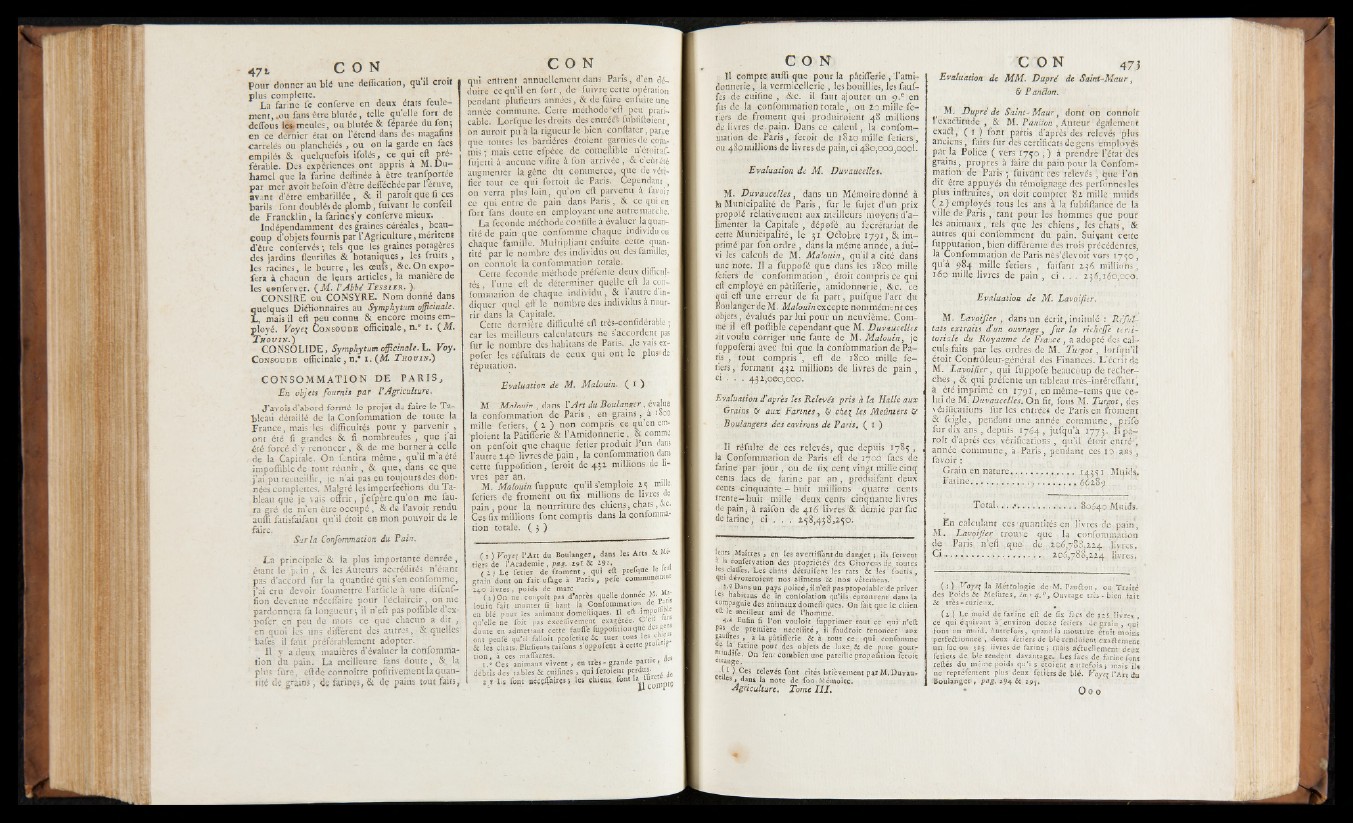 472 CON
pour donner au blé une dessication, qu'il croît
plus complette.
La farine se conserve en deux états seule-
ment, ou sans être blutée, telle qu'elle sort de
dessous les meules, ou blutée & séparée du son;
en ce dernier état on l'étend dans des magasins
carrelés ou planchéiés, ou on la garde en sacs
empilés & quelquefois isolés, ce qui est pré-
férable. Des expériences ont appris à M. Du-
hamel que la farine destinée à être transportée
par mer avoit besoin d'être desséchée par l'étuve,
avant d'être embarillée, & il paroît que si ces
barils sont doublés de plomb, suivant le conseil
de Francklin, la farine s'y conserve mieux.
Indépendamment des graines céréales, beau-
coup d'objets fournis par l'Agriculture, méritent
d'être conservés; tels que les graines potagères
des jardins fleuristes & botaniques, les fruits,
les racines, le beurre, les œufs, &c. On expo-
sera à chacun de leurs articles, la manière de
les conserver. (M. l'Abbé TESSIER.)
CONSIRE ou CONSYRE. Nom donné dans
quelques Dictionnaires au Symphytum officinale.
L. mais il est peu connu & encore moins em-
ployé. Voyez CONSOUDE officinale, n.° 1. (M.
THOUIN.)
CONSOLIDE, Symphytum officinale. L. Voy.
CONSOUDE officinale, n.° 1. (M. THOUIN.)
CONSOMMATION DE PARIS,
En objets fournis par l'Agriculture.
J'avois d'abord formé le projet de faire le Ta-
bleau détaillé de la Consommation de toute la
France, mais les difficultés pour y parvenir,
ont été si grandes & si nombreuses, que j'ai
été forcé d'y renoncer, & de me borner à celle
de la Capitale. On sentira même, qu'il m'a été
impossible de tout réunir, & que, dans ce que
j'ai pu recueillir, je n'ai pas eu toujours des don-
nées complettes. Malgré les imperfections du Ta-
bleau que je vais offrir, j'espère qu'on me sau-
ra gré de m'en être occupé, & de l'avoir rendu
aussi satisfaisant qu'il étoit en mon pouvoir de le
faire.
Sur la Consommation du Pain.
La principale & la plus importante denrée,
étant le pain, & les Auteurs accrédités n'étant
pas d'accord sur la quantité qui s'en consomme,
j'ai cru devoir soumettre l'article à une discus-
sion devenue nécessaire pour l'éclaircir, on me
pardonnera sa longueur; il n'est pas possible d'ex-
poser en peu de mots ce que chacun a dit,
en quoi les uns diffèrent des autres, & quelles
bases il faut préférablement adopter.
Il y a deux manières d'évaluer la consomma-
tion du pain. La meilleure sans doute, & la
plus sûre, est de connoître positivement la quan-
tité de grains, de farines, & de pains tout faits,
CON
qui entrent annuellement dans Paris, d'en dé-
duire ce qu'il en sort, de suivre cette opération
pendant plusieurs années, & de faire ensuite une
année commune. Cette méthode est peu prati-
cable. Lorsque les droits des entrées subsistoient,
on auroit pu à la rigueur le bien constater, parce
que toutes les barrières étoient garnies de com-
mis; mais cette espèce de comestible n'étoit as-
sujetti à aucune visite à son arrivée, & c'eût été
augmenter la gêne du commerce, que de véri-
fier tout ce qui sortoit de Paris. Cependant,
on verra plus loin, qu'on est parvenu à savoir
ce qui entre de pain dans Paris, & ce qui en
sort sans doute en employant une autre marche.
La seconde méthode consiste à évaluer la quan-
tité de pain que consomme chaque individu ou
chaque famille. Multipliant ensuite cette quan-
tité par le nombre des individus ou des familles,
on connoît la consommation totale.
Cette seconde méthode présente deux difficul-
tés, l'une est de déterminer quelle est la con-
sommation de chaque individu, & l'autre d'in-
diquer quel est le nombre des individus à nour-
rir dans la Capitale.
Cette dernière difficulté est très-considérable;
car les meilleurs calculateurs ne s'accordent pas
sur le nombre des habitans de Paris. Je vais ex-
poser les résultats de ceux qui ont le plus de
réputation.
Evaluation de M. Malouin. (1)
M. Malouin, dans l'Art du Boulanger, évalue
la consommation de Paris, en grains, à 1800
mille setiers, (2) non compris ce qu'en em-
ploient la Pâtisserie & l'Amidonnerie, & comme
on pensoit que chaque setier produit l'un dans
l'autre 240 livres de pain, la consommation dans
cette supposition, seroit de 432 millions de li-
vres par an.
M. Malouin suppute qu'il s'emploie 25 mille
setiers de froment ou six millions de livres de
pain, pour la nourriture des chiens, chats, &c.
Ces six millions sont compris dans la consomma-
tion totale. (3)
(1) Voyez l'Art du Boulanger, dans les Arts & Mé-
tiers de l'Académie, pag. 291 & 292.
(2) Le setier de froment, qui est presque le seul
grain dont on fait usage à Paris, pèse communément
240 livres, poids de marc
(3) On ne conçoit pas d'après quelle donnée M. Ma-
louin fait monter si haut la Consommation de Paris
en blé pour les animaux domestiques. Il est impossible
qu'elle ne soit pas excessivement exagérée. C'est sans
doute en admettant cette fausse supposition que des gens
ont pensé qu'il falloit proscrire & tuer tous les chiens
& les chats. Plusieurs raisons s'opposent à cette proscrip-
tion, à ces massacres.
1.° Ces animaux vivent, en très-grande partie, des
débris des tables & cuisines, qui seroient perdus.
2.° Ils sont nécessaires; les chiens font la sûreté de
Il compte
CON
Il compte aussi que pour la pâtisserie, l'ami-
donnerie, la vermicellerie, les bouillies, les sauf-
ses de cuisine, &c. il faut ajouter un 9.e en
sus de la consommation totale, ou 20 mille se-
tiers de froment qui produiroient 48 millions
de livres de pain. Dans ce calcul, la consom-
mation de Paris, seroit de 1820 mille setiers,
ou 480 millions de livres de pain, ci 480,000,000l.
Evaluation de M. Duvaucelles.
M. Duvaucelles, dans un Mémoire donné à
la Municipalité de Paris, sur le sujet d'un prix
proposé relativement aux meilleurs moyens d'a-
limenter la Capitale, déposé au secrétariat de
cette Municipalité, le 31 Octobre 1791, & im-
primé par son ordre, dans la même année, a sui-
vi les calculs de M. Malouin, qu'il a cité dans
une note. Il a supposé que dans les 1800 mille
setiers de consommation, étoit compris ce qui
est employé en pâtisserie, amidonnerie, &c. ce
qui est une erreur de sa part, puisque l'art du
Boulanger de M. Malouin excepte nommément ces
objets, évalués par lui pour un neuvième. Com-
me il est possible cependant que M. Duvaucelles
ait voulu corriger une faute de M. Malouin, je
supposerai avec lui que la consommation de Pa-
ris, tout compris, est de 1800 mille se-
tiers, formant 432 millions de livres de pain,
ci . . . 432,000,000.
Evaluation d'après les Relevés pris à la Halle aux
Grains & aux Farines, & chez les Meûniers &
Boulangers des environs de Paris, (1)
Il résulte de ces relevés, que depuis 1785,
la Consommation de Paris est de 1700 sacs de
farine par jour, ou de six cent vingt mille cinq
cents sacs de farine par an, produisant deux
cents cinquante-huit millions quatre cents
trente-huit mille deux cents cinquante livres
de pain, à raison de 416 livres & demie par sac
de farine, ci . . . 258,438,250.
leurs Maîtres, en les avertissant du danger; ils servent
à la conservation des propriétés des Citoyens de toutes
les classes. Les chats détruisent les rats & les souris,
qui dévoreroient nos alimens & nos vêtemens.
3.° Dans un pays policé, il n'est pas proposable de priver
les habitans de la consolation qu'ils éprouvent dans la
compagnie des animaux domestiques. On sait que le chien
est le meilleur ami de l'homme.
4.° Enfin si l'on vouloit supprimer tout ce qui n'est
pas de première nécessité, il faudroit renoncer aux
gauffres, à la pâtisserie & à tout ce qui consomme
de la farine pour des objets de luxe & de pure gour-
mandise. On sent combien une pareille proposition seroit
étrange.
(1) Ces relevés sont cités brièvement par M. Duvau-
celles, dans la note de son Mémoire.
Agriculture. Tome III.
CON 473
Evaluation de MM. Dupré de Saint-Maur,
& Paucton.
M. Dupré de Saint-Maur, dont on connoît
l'exactitude, & M. Paucton, Auteur également
exact, (1) sont partis d'après des relevés plus
anciens, faits sur des certificats de gens employés
par la Police (vers 1750,) à prendre l'état des
grains, propres à faire du pain pour la Consom-
mation de Paris; suivant ces relevés, que l'on
dit être appuyés du témoignage des personnes les
plus instruites, on doit compter 82 mille muids
(2) employés tous les ans à la subsistance de la
ville de Paris, tant pour les hommes que pour
les animaux, tels que les chiens, les chats, &
autres qui consomment du pain. Suivant cette
supputation, bien différente des trois précédentes,
la Consommation de Paris ne s'élevoit vers 1750,
qu'à 984 mille setiers, faisant 236 millions,
160 mille livres de pain, ci . . . 236,160,000.
Evaluation de M. Lavoisier.
M. Lavoisier, dans un écrit, intitulé: Résul-
tats extraits d'un ouvrage, sur la richesse terri-
toriale du Royaume de France, a adopté des cal-
culs faits par les ordres de M. Turgot, lorsqu'il
étoit Contrôleur-général des Finances. L'écrit de
M. Lavoisier, qui suppose beaucoup de recher-
ches, & qui présente un tableau très-intéressant,
a été imprimé en 1791, en même-tems que ce-
lui de M. Duvaucelles. On fit, sous M. Turgot, des
vérifications sur les entrées de Paris en froment
& seigle, pendant une année commune, prise
sur dix ans, depuis 1764, jusqu'à 1773. Il pa-
roît d'après ces vérifications, qu'il étoit entré,
année commune, à Paris, pendant ces 10 ans,
savoir:
Grain en nature. . . . . . . . . . . 14351 Muids.
Farine. . . . . . . . . . . . . . . . 66289
Total. . . . . . . . . . . . . . 80640 Muids.
En calculant ces quantités en livres de pain,
M. Lavoisier trouve que la consommation
de Paris n'est que de 206,788,224 livres,
Ci . . . . . . . . . . . . . . 206,788,224 livres.
(1) Voyez la Métrologie de M. Paucton, ou Traité
des Poids & Mesures, in-4.°, Ouvrage très-bien fait
& très-curieux.
(2) Le muid de farine est de six sacs de 325 livres,
ce qui équivaut à environ douze setiers de grain, qui
sont un muid. Autrefois, quand la mouture étoit moins
perfectionnée, deux setiers de blé rendoient exactement
un sac ou 325 livres de farine; mais actuellement deux
setiers de blé rendent davantage. Les sacs de farine sont
restés du même poids qu'ils étoient autrefois; mais ils
ne représentent plus deux setiers de blé. Voyez l'Art du
Boulanger, pag. 294 & 295.
Ooo